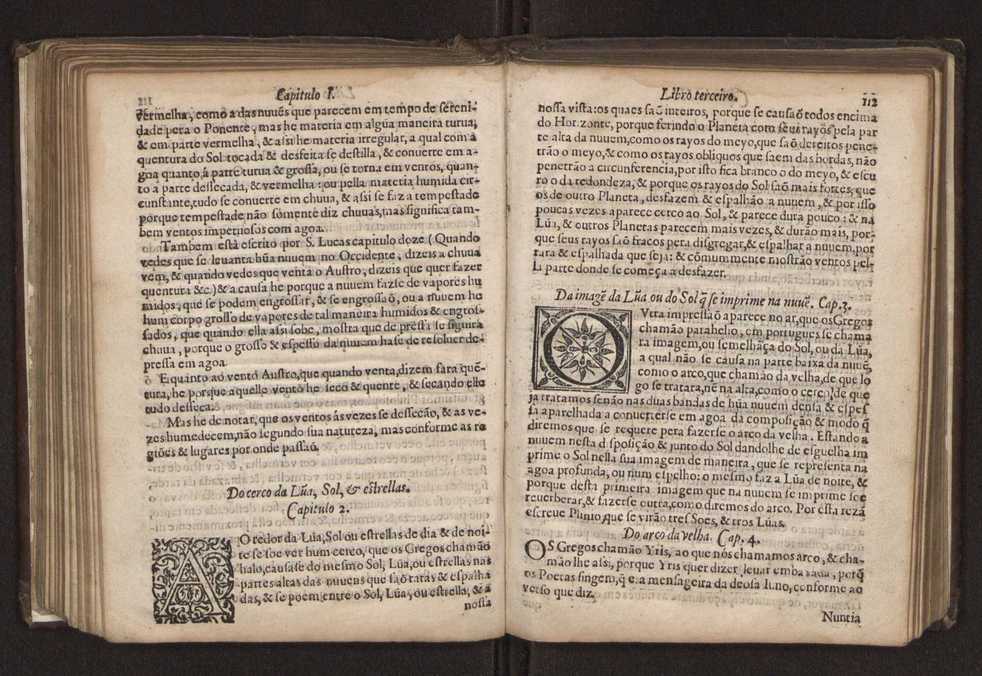 111
Capitulo I.
vermelha, como a das nuuẽs que parecem em tempo de sereni-
dade pera o Ponente, mas he materia em algũa maneira turua,
& em parte vermelha, & assi he materia irregular, a qual com a
quentura do Sol tocada & desfeita se destilla, & conuerte em a-
goa quanto á parte turua & grossa, ou se torna em ventos, quan-
to a parte dessecada, & vermelha: ou pella materia humida cir-
cunstante, tudo se conuerte em chuua, & assi se faz a tempestade
porque tempestade não sómente diz chuuas, mas significa tam-
bem ventos impetuosos com agoa.
Tambem està escrito por S. Lucas capitulo doze (Quando
vedes que se leuanta hũa nuuem no Occidente, dizeis a chuua
vem, & quando vedes que venta o Austro, dizeis que quer fazer
quentura &c.) & a causa he porque a nuuem fazse de vapores hu
midos, que se podem engrossar, & se engrossaõ, ou a nuuem he
hum corpo grosso de vapores de tal maneira humidos & engros-
sados, que quando ella assi sobe, mostra que de pressa se siguirà
chuua, porque o grosso & espesso da nuuem hase de resoluer de-
pressa em agoa.
E quanto ao vento Austro, que quando venta, dizem fara quẽ-
tura, he porque aquelle vento he seco & quente, & secando ello
tudo desseca.
Mas he de notar, que os ventos ás vezes se dessecão, & as ve-
zes humedecem, não segundo sua natureza, mas conforme as re
giões & lugares por onde passaõ.
Do cerco da Lũa, Sol, & estrellas.
Capitulo 2.
AO redor da Lúa, Sol ou estrellas de dia & de noi-
te se soe ver hum cerco, que os Gregos chamão
halo, causase do mesmo Sol, Lũa, ou estrellas nas
partes altas das nuuens que saõ ratas & espalha
das, & se poem entre o Sol, Lũa, ou estrella, & a
nossa
Libro terceiro.
112
nossa vista: os quaes saõ inteiros, porque se causaõ todos encima
do Horizonte, porque ferindo o Planeta com seus rayos pela par
te alta da nuuem, como os rayos do meyo, que saõ dereitos pene-
trão o meyo, & como os rayos obliquos que saem das bordas, não
penetrão a circunferencia, por isto fica branco o do meyo, & escu
ro o da redondeza, & porque os rayos do Sol saõ mais fortes, que
os de outro Planeta, desfazem & espalhão a nuuem, & por isso
poucas vezes aparece cerco ao Sol, & parece dura pouco: & na
Lũa, & outros Planetas parecem mais vezes, & durão mais, por-
que seus rayos saõ fracos pera disgregar, & espalhar a nuuem, por
rara & espalhada que seja: & cõmummente mostrão ventos pel-
la parte donde se começa a desfazer.
Da imagẽ da Lũa ou do Sol q̃ se imprime na nuuẽ. Cap. 3.
OVtra impressaõ aparece no ar, que os Gregos
chamão parahelio, em portugues se chama
ra imagem, ou semelhãça do Sol, ou da Lũa,
a qual não se causa na parte baixa da nuuẽ,
como o arco, que chamão da velha, de que lo
go se tratara, nẽ na alta, como o cerco, de que
ja tratamos senão nas duas bandas de hũa nuuem densa & espes
sa aparelhada a conuerterse em agoa da composição & modo q̃
diremos que se requere pera fazerse o arco da velha. Estando a
nuuem nesta disposição & junto do Sol dandolhe de esguelha im
prime o Sol nella sua imagem de maneira, que se representa na
agoa profunda, ou num espelho: o mesmo faz a Lũa de noite, &
porque desta primeira imagem que na nuuem se imprime soe
reuerberar, & fazerse outra, como diremos do arco. Por esta rezã
escreue Plinio, que se virão tres Soes, & tres Lũas.
Do arco da velha. Cap. 4.
OS Gregos chamão Yris, ao que nós chamamos arco, & cha-
mão lhe assi, porque Yris quer dizer leuar embaxada, porq̃
os Poetas fingem, q̃ e: a mensageira da deosa Iuno, conforme ao
verso que diz.
Nuntia